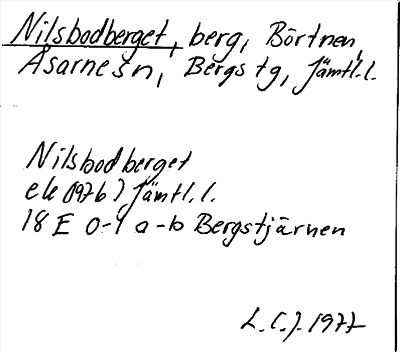 Nilsbodberget, berg, Börtnen,
Åsarne sn, Bergs tg, Jämtl.l.
Nilsbodberget
ek (1976) Jämtl.l.
18 E 0-1 a-b Bergstjärnen
L.C.J. 1977